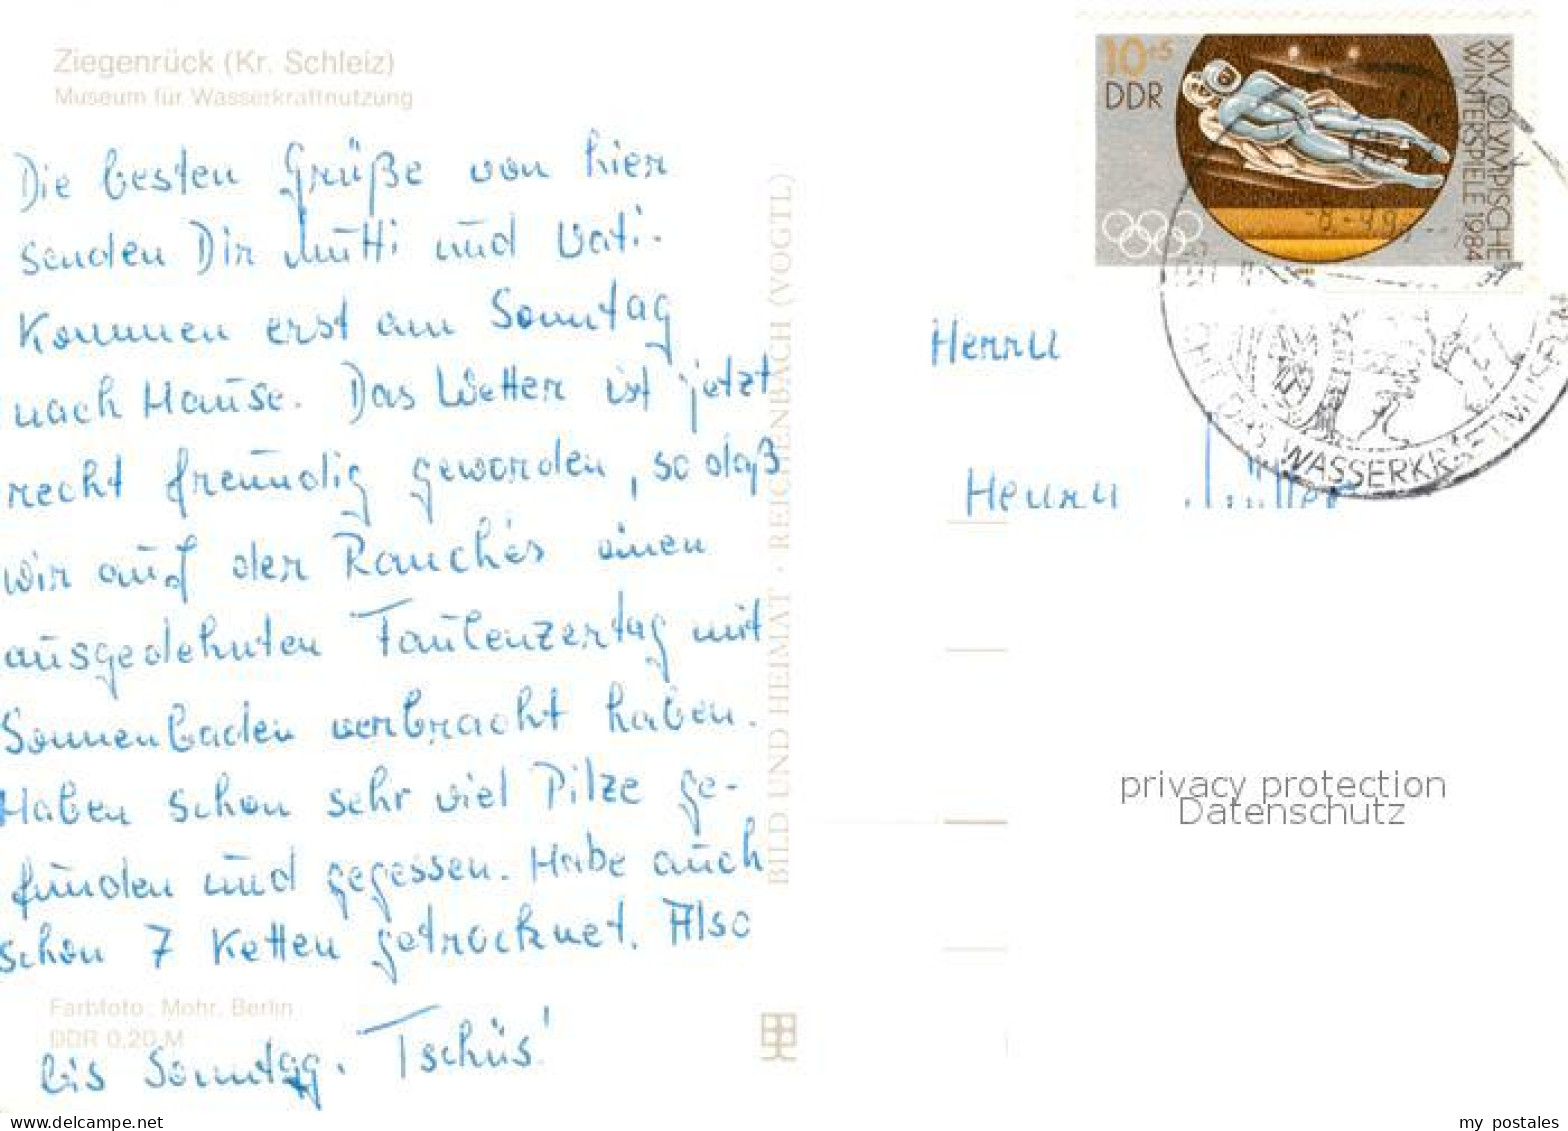 Ziegenrück (Kr. Schleiz)
Museum für Wasserkraftnutzung
Die besten Grüße von hier
senden Dir Mutti und Vati.
Kommen erst am Sonntag
nach Hause. Das Wetter ist jetzt
recht freundig geworden, so daß
wir auf der Rauchés einen
ausgedehnten Faulenzertag mit
Sonnenbaden verbracht haben.
Haben schon sehr viel Pilze ge-
funden und gegessen. Habe auch
schon 7 Ketten getrocknet. Also
bis Sonntag. Tschüs!
Farbfoto: Mohr, Berlin
DDR 0,20 M
BILD UND HEIMAT · REICHENBACH (VOGTL)
10+5
DDR
XIV. OLYMPISCHE
WINTERSPIELE 1984
DAS WASSERKRAFTMUSE
Herrn
Henry Müller
privacy protection
Datenschutz
my postales